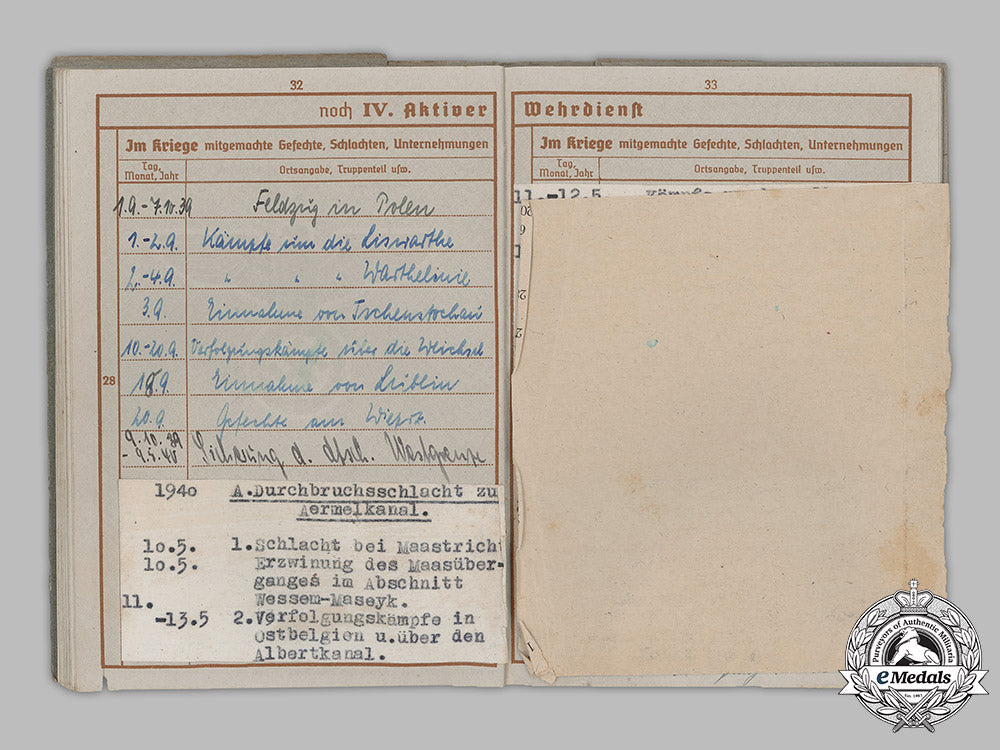 32
noch IV. Aktiver
Im Kriege mitgemachte Gefechte, Schlachten, Unternehmungen
Tag, Monat, Jahr
Ortsangabe, Truppenteil usw.
1.9.-7.10.39 Feldzug in Polen
1.-2.9. Kämpfe um die Liswarthe
2.-4.9. " " " Warthelinie
3.9. Einnahme von Tschenstochau
10.-20.9. Verfolgungskämpfe über die Weichsel
28
18.9. Einnahme von Lublin
20.9. Gefechte am Wieprz.
9.10.39
-9.5.40 Sicherung d. dtsch. Westgrenze
1940 A.Durchbruchsschlacht zu
Aermelkanal.
10.5. 1.Schlacht bei Maastricht
10.5. Erzwinung des Maasüber-
ganges im Abschnitt
Wessem-Maseyk.
11.
-13.5 2.Verfolgungskämpfe in
Ostbelgien u.über den
Albertkanal.
33
Wehrdienst
Im Kriege mitgemachte Gefechte, Schlachten, Unternehmungen
Tag, Monat, Jahr
Ortsangabe, Truppenteil usw.
11.-12.5. Kämpfe
Purveyors of Authentic Militaria
eMedals